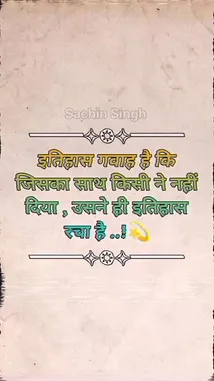 Sachin Singh
इतिहास गवाह है कि
जिसका साथ किसी ने नहीं
दिया , उसने ही इतिहास
रचा है ..! 💫